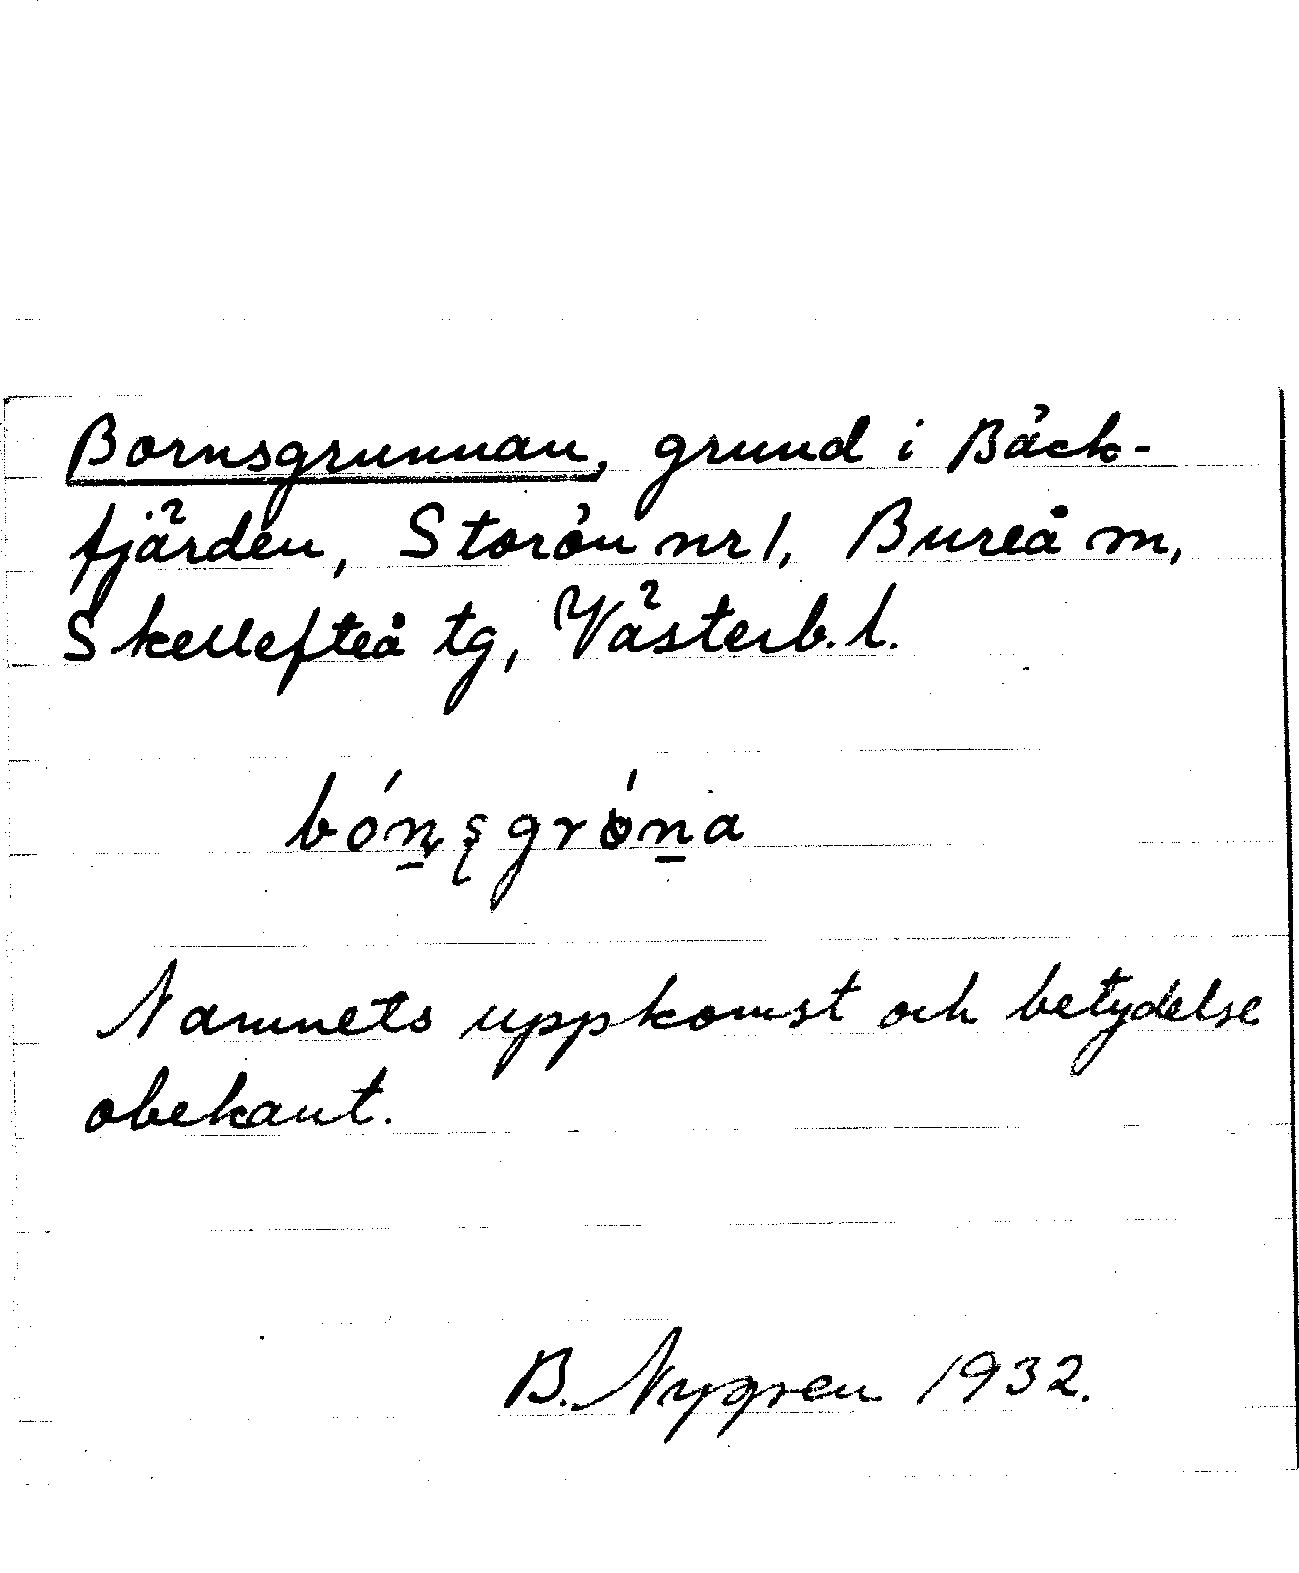 Bornsgrunnan, grund i Bäck-
fjärden, Storön nr 1, Bureå m,
Skellefteå tg, Västerb. l.
bón̠ʂgrón̠a
Namnets uppkomst och betydelse
obekant.
B. Nygren 1932.